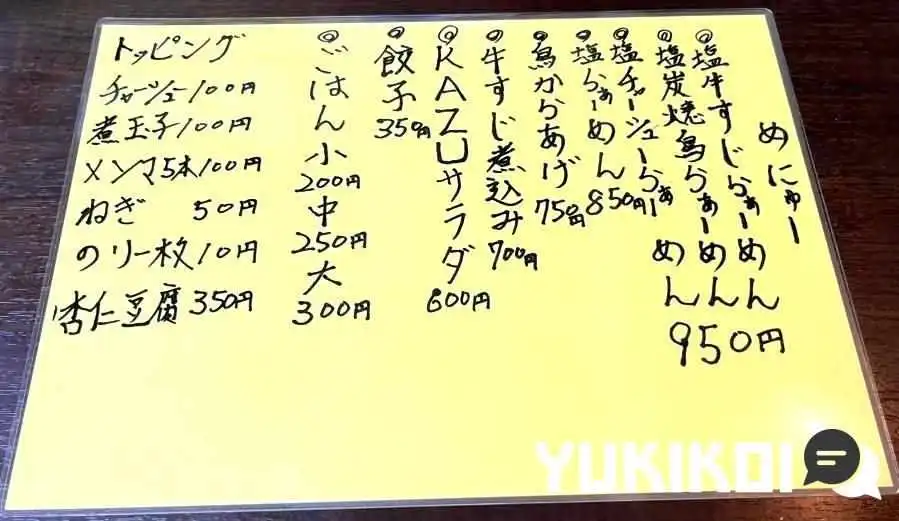 めにゅー
◎塩牛すじらぁーめん
◎塩炭焼鳥らぁーめん
◎塩チャーシューらぁーめん
950円
◎塩らぁーめん850円
◎鳥からあげ750円
◎牛すじ煮込み700円
◎KAZUサラダ600円
◎餃子350円
◎ごはん小200円中250円大300円
トッピング
チャーシュー100円
煮玉子100円
メンマ5本100円
ねぎ 50円
のり一枚10円
杏仁豆腐350円
YUKIKOI